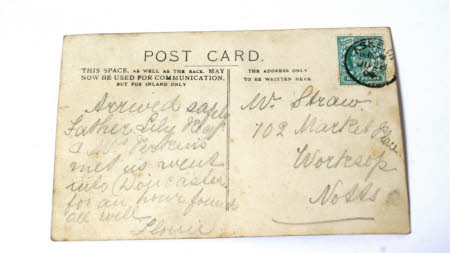 POST CARD.
THIS SPACE, AS WELL AS THE BACK, MAY
NOW BE USED FOR COMMUNICATION,
BUT FOR INLAND ONLY
THE ADDRESS ONLY
TO BE WRITTEN HERE.
Arrived safely
Father Lily
& Mrs Perkins
met us went
into Doncaster
for an hour found
all well
Florrie
Mr. Straw
102 Market Place
Worksop
Notts